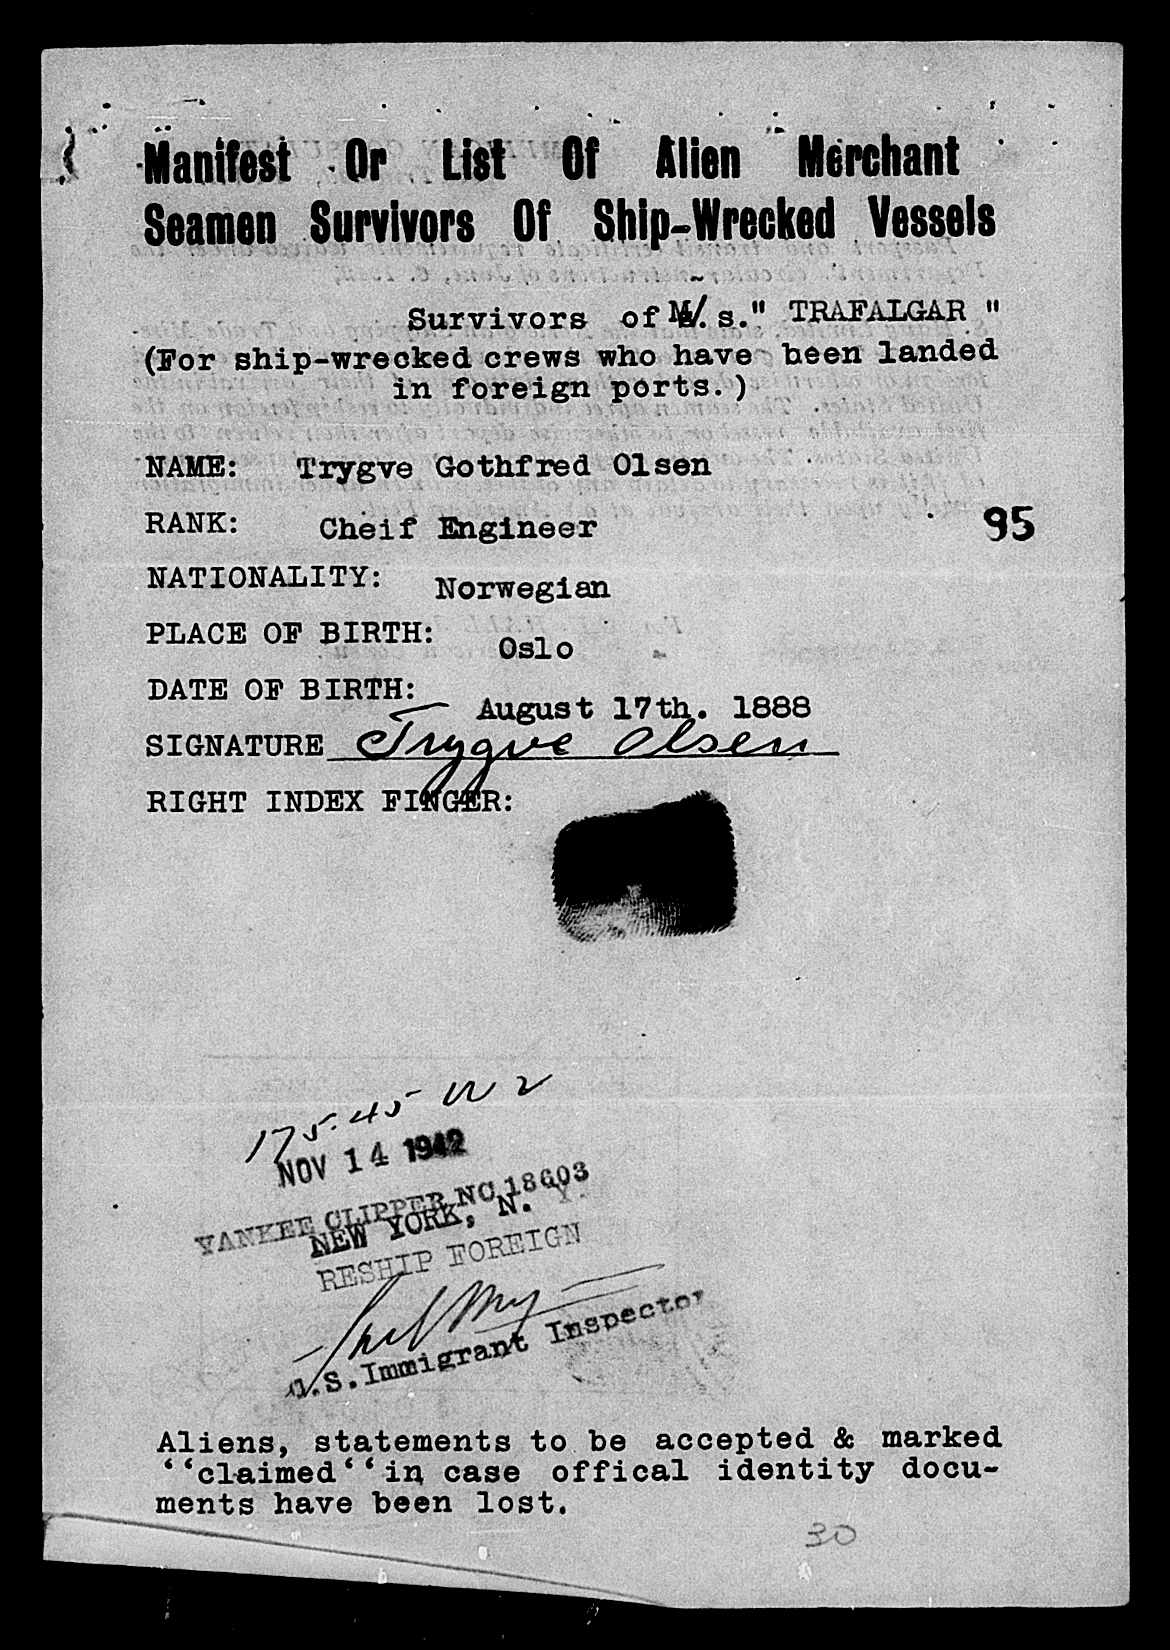 Manifest Or List Of Alien Merchant
Seamen Survivors Of Ship-Wrecked Vessels
Survivors of M/. s." TRAFALGAR "
(For ship-wrecked crews who have been landed
in foreign ports.)
NAME: Trygve Gothfred Olsen
RANK: Cheif Engineer
95
NATIONALITY: Norwegian
PLACE OF BIRTH: Oslo
DATE OF BIRTH: August 17th. 1888
SIGNATURE Trygve Olsen
RIGHT INDEX FINGER:
175.45 W 2
NOV 14 1942
YANKEE CLIPPER NC 18603
NEW YORK, N. Y.
RESHIP FOREIGN
U.S. Immigrant Inspector
Aliens, statements to be accepted & marked
‘‘claimed‘‘in case offical identity docu-
ments have been lost.
30